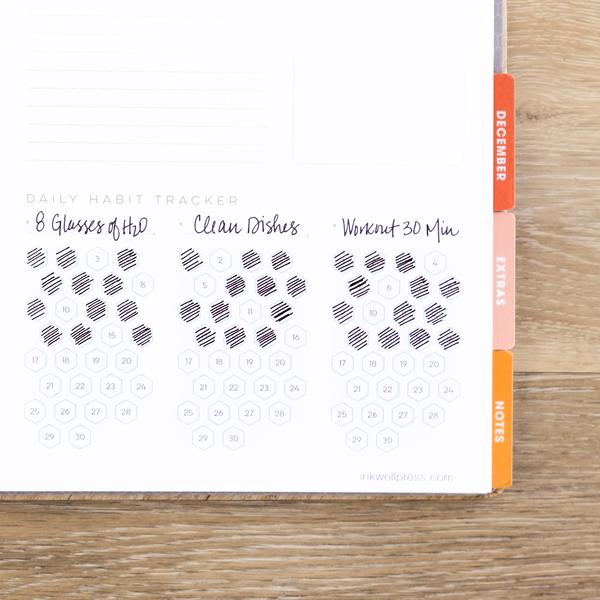 DAILY HABIT TRACKER
8 Glasses of H2O Clean Dishes Workout 30 Min
3 2 4
8 5 6
10 11 10
15 16
17 18 19 20 17 18 19 20 17 18 19 20
21 22 23 24 21 22 23 24 21 22 23 24
25 26 27 28 25 26 27 28 25 26 27 28
29 30 29 30 29 30
inkwellpress.com
DECEMBER
EXTRAS
NOTES